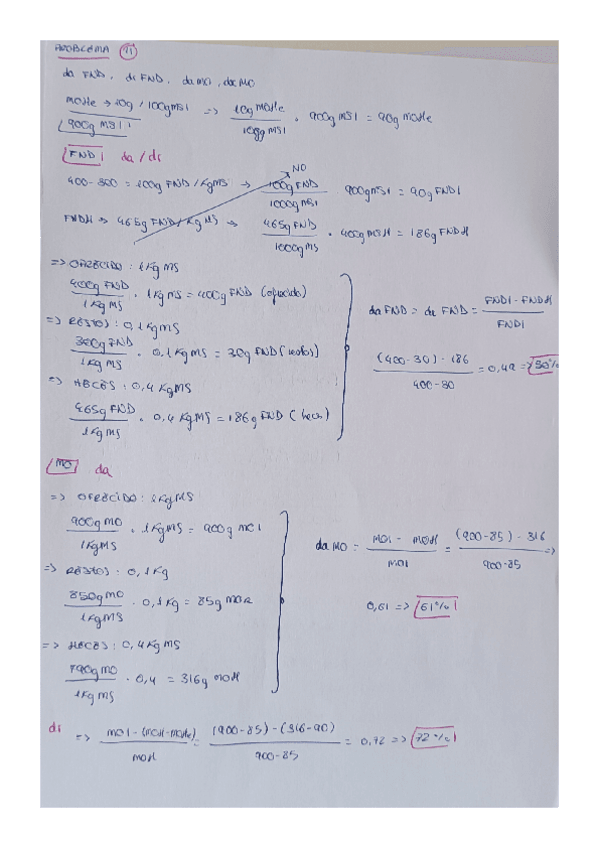 PROBLEMA 11
da FND, dr FND, da MO, dr MO
MOMe → 10g / 100g MSI => 10g MOMe / 100g MSI · 900g MSI = 90g MOMe
900g MSI
FND da / dr
NO
400 - 300 = 100g FND / Kg MS → 100g FND / 1000g MSI · 900g MSI = 90g FNDI
FNDH → 465g FND / Kg MS → 465g FND / 1000g MS · 400g MSH = 186g FNDH
=> OFRECIDO : 1Kg MS
400g FND / 1Kg MS · 1Kg MS = 400g FND (ofrecido)
=> RESTOS : 0,1Kg MS
300g FND / 1Kg MS · 0,1Kg MS = 30g FND (restos)
=> HECES : 0,4 Kg MS
465g FND / 1Kg MS · 0,4 Kg MS = 186g FND (heces)
da FND = dr FND = FNDI - FNDH / FNDI
(400 - 30) - 186 / 400 - 30 = 0,49 => 50%
MO da
=> OFRECIDO : 1Kg MS
900g MO / 1Kg MS · 1Kg MS = 900g MO
=> RESTOS · 0,1Kg
850g MO / 1Kg MS · 0,1Kg = 85g MOR
=> HECES : 0,4Kg MS
790g MO / 1Kg MS · 0,4 = 316g MOH
da MO = MOI - MOH / MOI = (900-85) - 316 / 900-85 =>
0,61 => 61%
dr => MOI - (MOH-MOMe) / MOI = (900-85) - (316-90) / 900-85 = 0,72 => 72%